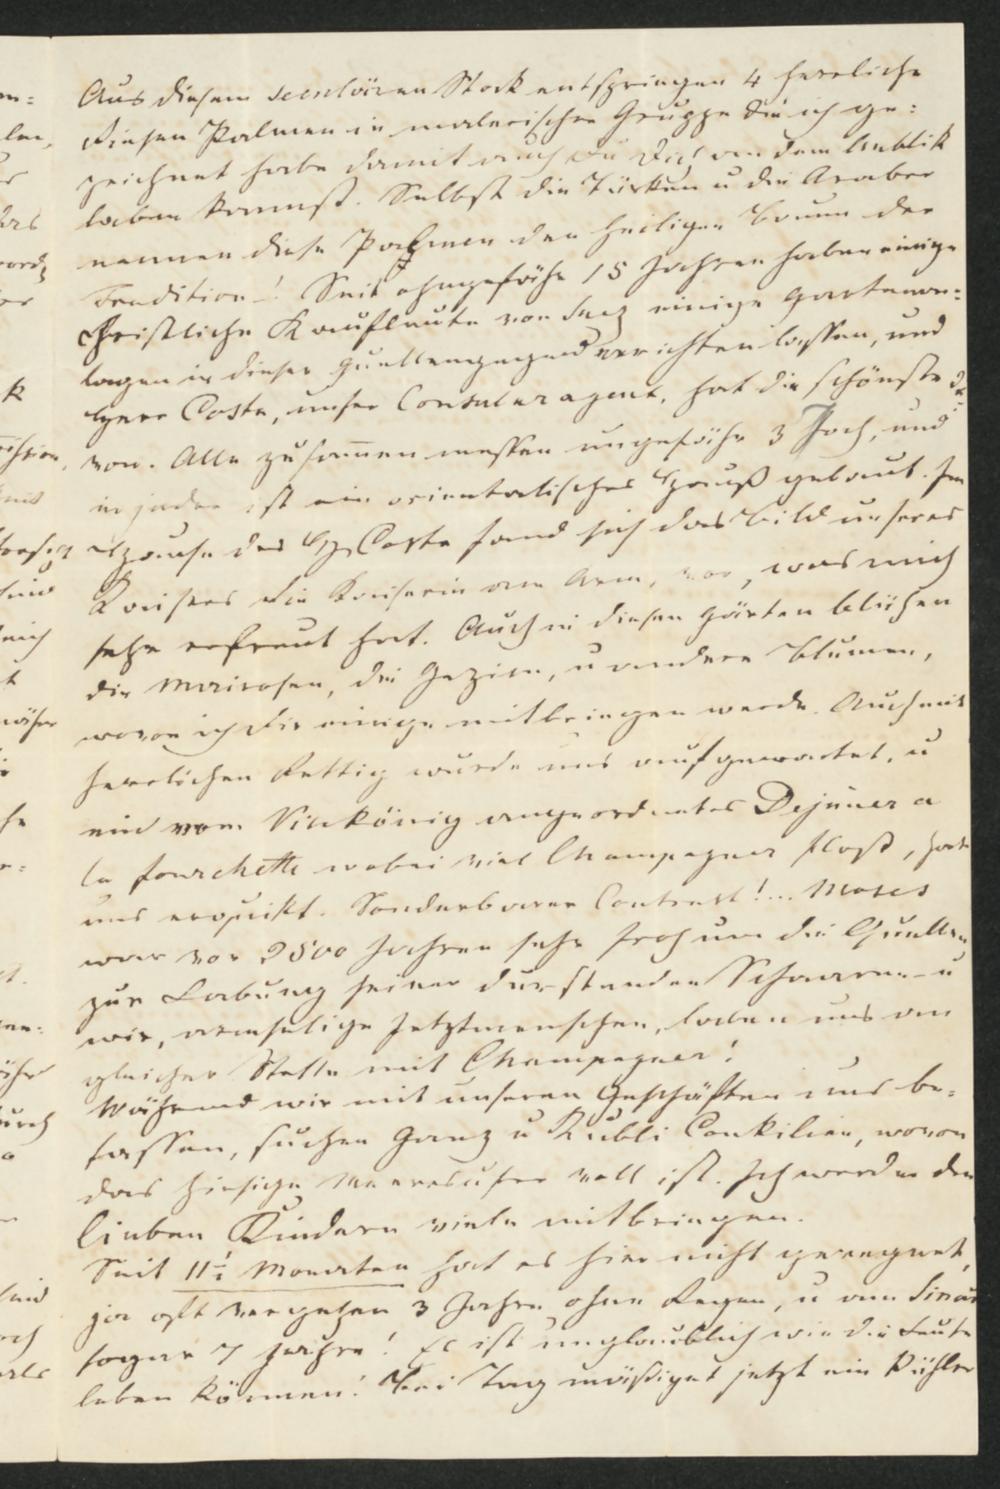 Aus diesem seculären Stock entspringen 4 herrliche
Riesen Palmen in malerischer Gruppe die ich ge:
zeichnet habe damit auch Du Dich an dem Anblik
laben kannst. Selbst die Türken u die Araber
nennen diese Palmen den heiligen Baum der
Tradition! Seit ohngefähr 15 Jahren haben einige
christliche Kaufleute von Suez einige Gartenan:
lagen in dieser Quellengegend errichten lassen, und
Herr Costa, unser Consularagent, hat die schönste da:
von. Alle zusammen messen ungefähr 3 Joch, und
in jeder ist ein orientalisches Haus gebaut. Im
Hause des H. Costa fand sich das Bild unseres
Kaisers die Kaiserin am Arm, vor, was mich
sehr erfreut hat. Auch in diesen Gärten blühen
die Mairosen, die Gezien, u andere Blumen,
wovon ich Dir einige mitbringen werde. Auch mit
herrlichen Rettig wurde uns aufgewartet, u
ein vom Vicekönig angeordnetes Dejeuner a
la fourchette wobei viel Champagner floß, hat
uns erquikt. Sonderbarer Contrast!... Moses
war vor 2500 Jahren sehr froh um die Quellen
zur Labung seiner durstenden Schaaren – u
wir, armselige Jetztmenschen, laben uns an
gleicher Stelle mit Champagner!
Während wir mit unseren Geschäften uns be:
fassen, suchen Ganz u Kubli Conkilien, wovon
das hiesige Meeresufer voll ist. Ich werde den
lieben Kindern viele mitbringen.
Seit 11½ Monaten hat es hier nicht geregnet,
ja oft vergehen 3 Jahre ohne Regen, u am Sinai
sogar 7 Jahre! Es ist unglaublich wie die Leute
leben können! Bei Tag mäßiget jetzt ein kühler